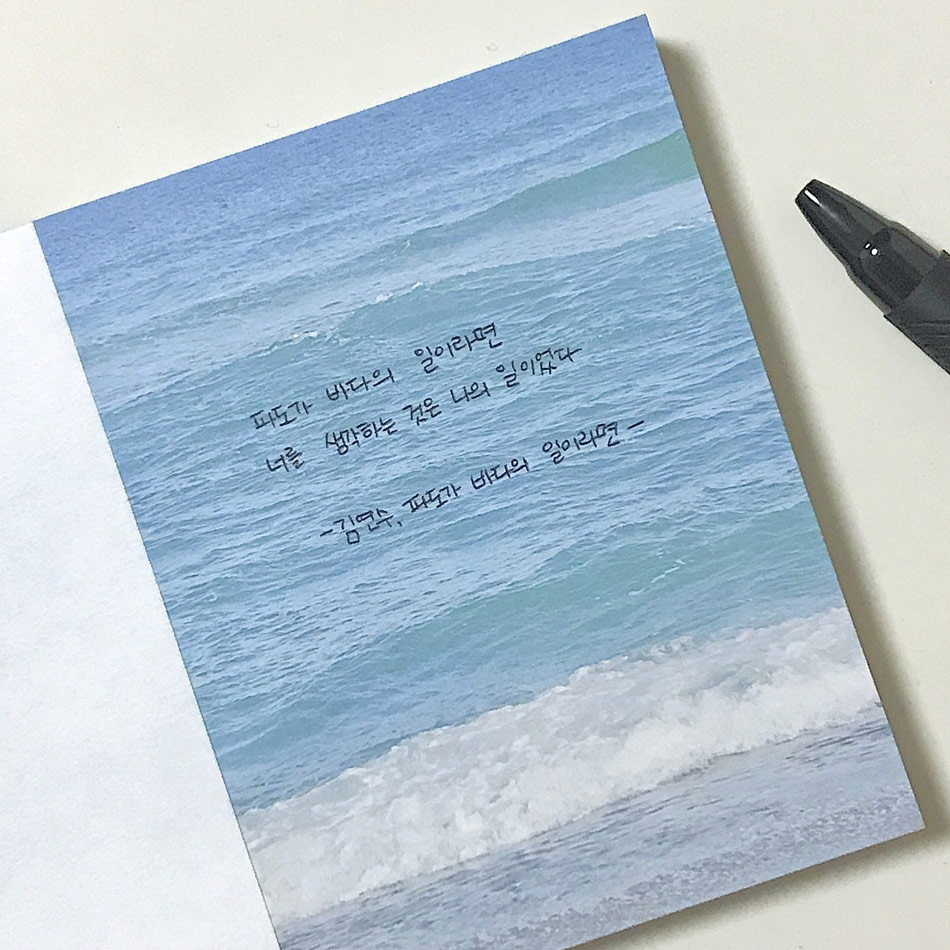 파도가 바다의 일이라면
너를 생각하는 것은 나의 일이었다
-김연수, 파도가 바다의 일이라면-